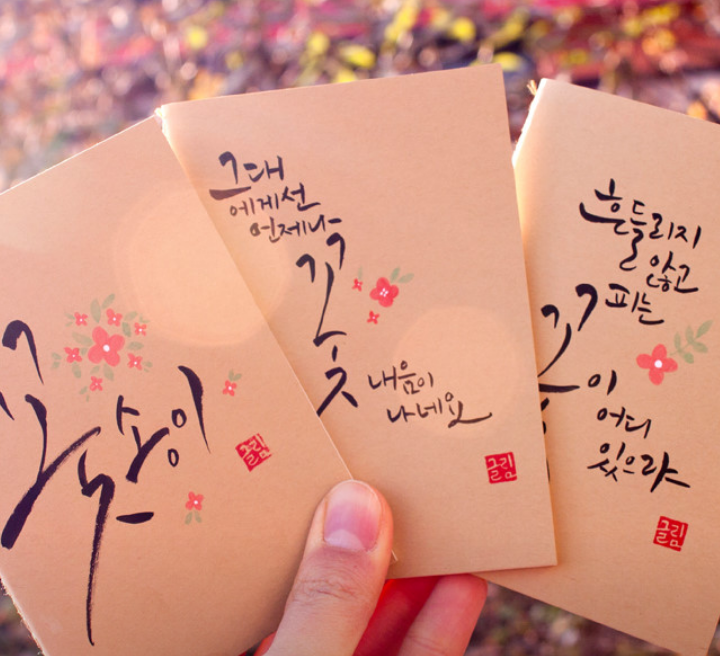 꽃송이
글림
그대
에게선
언제나
꽃
내음이
나네요
글림
흔들리지
않고
피는
꽃이
어디
있으랴
글림